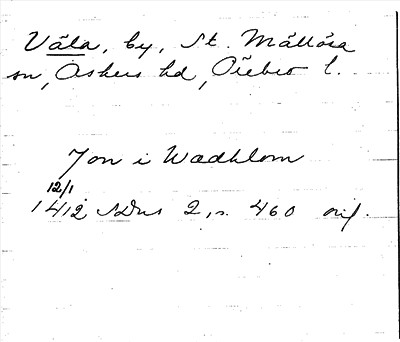 Våla, by, St. Mällösa
sn, Askers hd, Örebro l.
Jon i Wadhlom
12/1
1412 SDns 2, s. 460 orig.